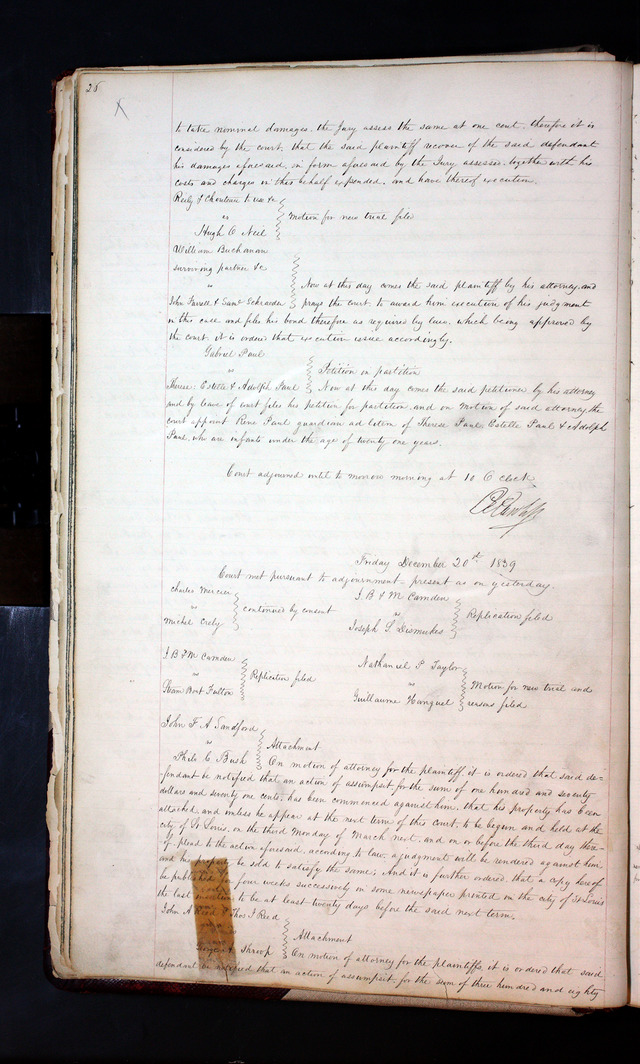 26
X
to take nominal damages. the Jury assess the same at one cent. therefore it is
considered by the court, that the said plaintiff recover of the said defendant
his damages aforesaid, in form aforesaid by the Jury assesses, together with his
costs and charges in this behalf expended, and have thereof execution.
Reily & Chouteau to use &c
vs
Hugh O Neil
Motion for new trial filed
William Buchanan
surviving partner &c
vs
John Farrell & Saml Schraeder
Now at this day comes the said plaintiff by his attorney, and
prays the court to award him execution of his judgment
in this case and files his bond therefore as required by law, which being approved by
the court, it is ordered that execution issue accordingly.
Gabriel Paul
vs
Therese, Estelle & Adolph Paul
Petition in partition
Now at this day comes the said petitioner by his attorney
and by leave of court files his petition for partition, and on motion of said attorney, the
court appoint Rene Paul guardian ad litem of Therese Paul Estelle Paul & Adolph
Paul, who are infants under the age of twenty one years.
Court adjourned until to morrow morning at 10 O clock
Friday December 20th 1839
Court met pursuant to adjournment - present as on yesterday.
Charles Mercier
vs
Michel Crely
continued by consent
J. B & M Camden
vs
Joseph S. Dismukes
Replication filed
J. B & M Camden
vs
Steam Boat Fulton
Replication filed
Nathaniel P. Taylor
vs
Guillaume
Motion for new trial and
reasons filed
John F. A. Sandford
vs
Philo C. Bush
Attachment
On motion of attorney for the plaintiff, it is ordered that said de-
fendant be notified that an action of assumpsit for the sum of one hundred and seventy
dollars and seventy one cents, has been commenced against him, that his property has been
attached, and unless he appear at the next term of this court, to be begun and held at the
city of St Louis, on the third Monday of March next, and on or before the third day there-
of, plead to the action aforesaid, according to law, a judgment will be rendered against him
and his be sold to satisfy the same, And it is further ordered, that a copy hereof
be published for four weeks successively in some newspaper printed in the city of St Louis
the last insertion to be at least twenty days before the said next term.
John A Reed & Thos J Reed
Throop
Attachment
On motion of attorney for the plaintiffs, it is ordered that said
defendant be notified that an action of assumpsit for the sum of three hundred and eighty